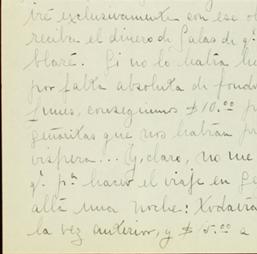 iré exclusivamente con ese ob
reciba el dinero di Galas di q'
blaré. Si no lo había he
por falta absoluta di fondo
lunes, conseguimos $10.00 p
señoritas que nos habían pr
víspera... Y, claro, no me
q' pa hacer el viaje en Ge
allá una noche! Todavía
la vez anterior, y $15.00 a